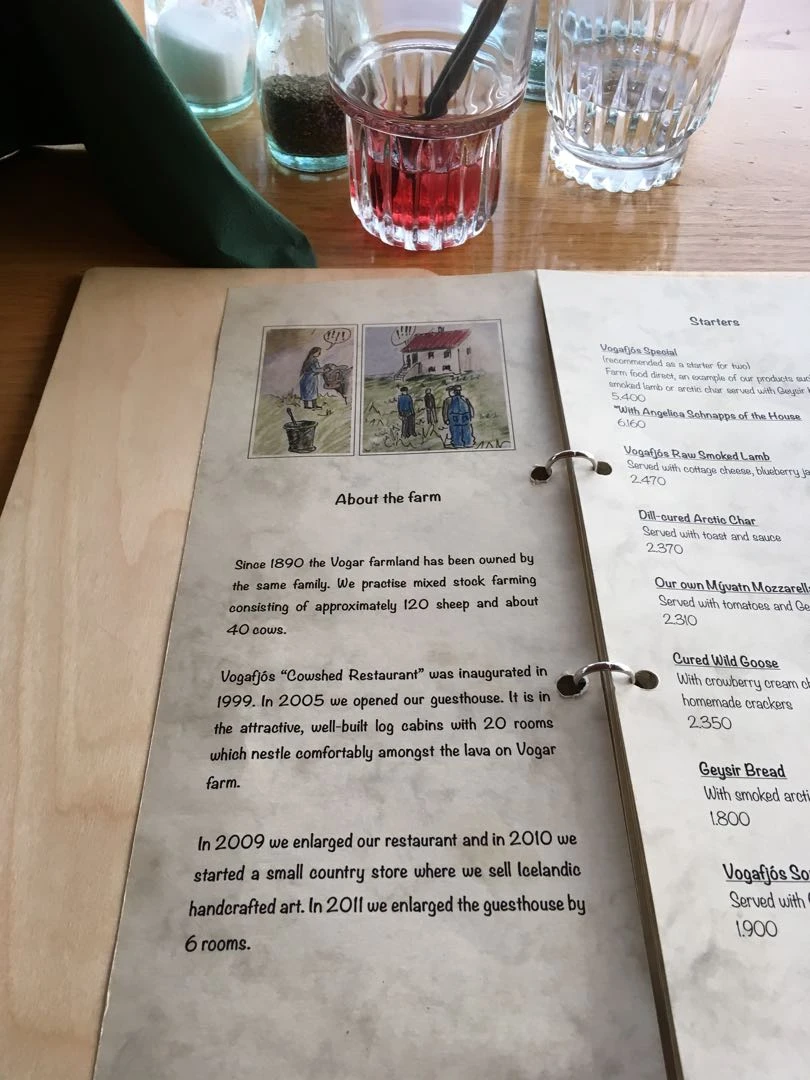 About the farm
Since 1890 the Vogar farmland has been owned by
the same family. We practise mixed stock farming
consisting of approximately 120 sheep and about
40 cows.
Vogafjós “Cowshed Restaurant” was inaugurated in
1999. In 2005 we opened our guesthouse. It is in
the attractive, well-built log cabins with 20 rooms
which nestle comfortably amongst the lava on Vogar
farm.
In 2009 we enlarged our restaurant and in 2010 we
started a small country store where we sell Icelandic
handcrafted art. In 2011 we enlarged the guesthouse by
6 rooms.
Starters
Vogafjós Special
(recommended as a starter for two)
Farm food direct, an example of our products
smoked lamb or arctic char served with Geysir
5.400
"With Angelica Schnapps of the House
6.160
Vogafjós Raw Smoked Lamb
Served with cottage cheese, blueberry
2.470
Dill-cured Arctic Char
Served with toast and sauce
2.370
Our own Mývatn
Served with tomatoes and
2.310
Cured Wild Goose
With crowberry cream
homemade crackers
2.350
Geysir Bread
With smoked
1.800
Vogafjós
Served with
1.900